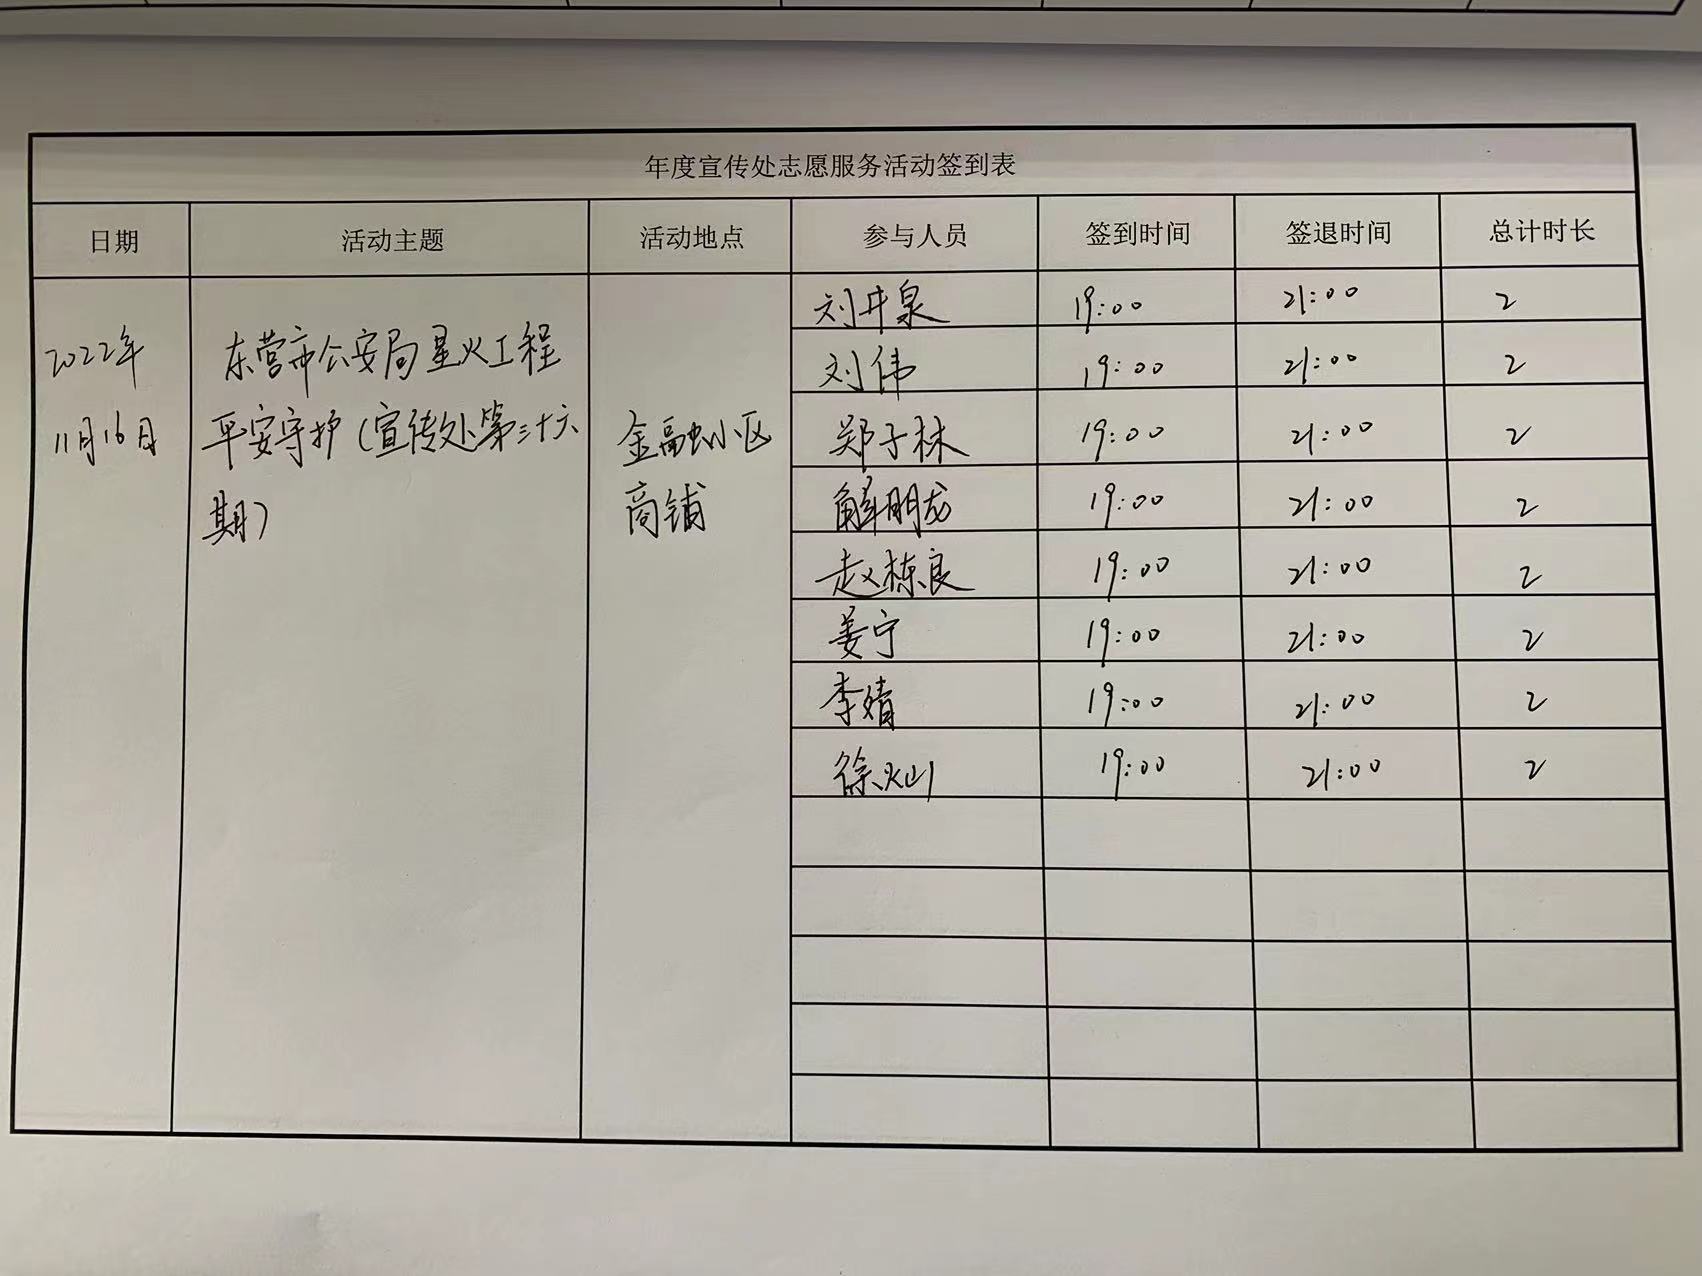 年度宣传处志愿服务活动签到表
日期 活动主题 活动地点 参与人员 签到时间 签退时间 总计时长
2022年
11月16日
东营市公安局星火工程
平安守护(宣传处第三十六
期)
金融小区
商铺
刘井泉 19:00 21:00 2
刘伟 19:00 21:00 2
郑子林 19:00 21:00 2
解朋龙 19:00 21:00 2
赵栋良 19:00 21:00 2
姜宁 19:00 21:00 2
李婧 19:00 21:00 2
徐灿 19:00 21:00 2